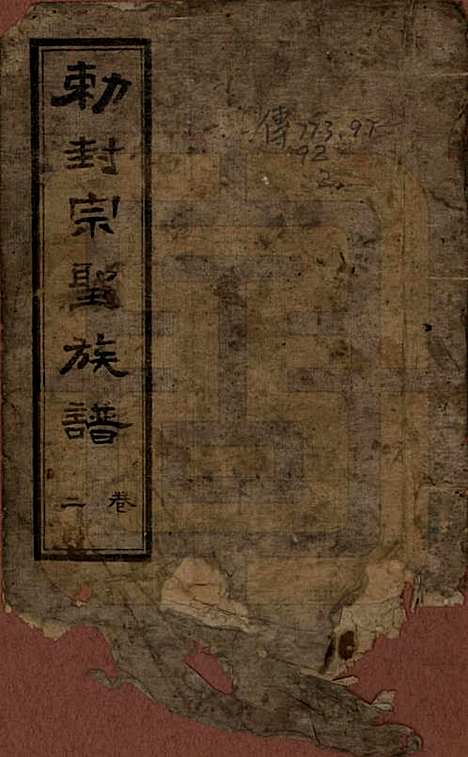 勅封宗聖族譜
卷二
傳 193.97
92
2